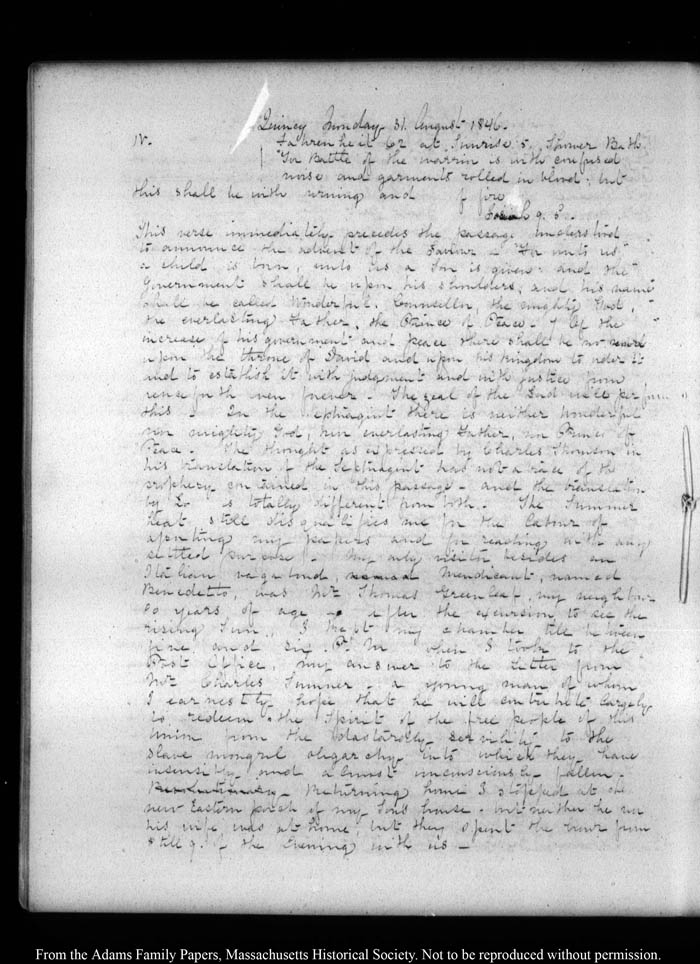 Quincy Monday 31. August 1846.
IV. Fahrenheit 62 at Sunrise 5. Shower Bath
For Battle of the warrior is with confused
noise and garments rolled in blood; but
this shall be with burning and of fire
Isaiah 9. 5.
This verse immediately precedes the passage understood
to announce the advent of the Saviour — "For unto us
a child is born, unto us a Son is given: and the
Government shall be upon his shoulders; and his name
shall be called Wonderful, Counsellor, the mighty God,
the everlasting Father, the Prince of Peace — Of the
increase of his government and peace there shall be no
upon the throne of David and upon his kingdom to order it
and to establish it with judgment and with justice from
henceforth even forever — The zeal of the Lord will perform
this — In the Septuagint there is neither Wonderful
nor mighty God, nor everlasting Father, nor Prince of
Peace — The thought as expressed by Charles Thomson in
his translation of the Septuagint has not a trace of the
prophecy contained in this passage — and the translation
by is totally different from both — The Summer
heat still disqualifies me for the labour of
assorting my papers and for reading with any
settled purpose — My only visitor besides an
Italian vagabond, Mendicant, named
Benedetto, was Mr Thomas Greenleaf, my neighbour
80 years of age — after the excursion to see the
rising Sun, I kept my chamber till between
five and six P.M. when I took to the
Post Office, my answer to the letter from
Mr Charles Sumner — a young man of whom
I earnestly hope that he will contribute largely
to redeem the Spirit of the free people of this
Union from the dastardly servility to the
slave mongrel oligarchy into which they have
insensibly and almost unconsciously fallen —
Returning home I stopped at the
new Eastern porch of my Son's house — but neither he nor
his wife was at home, but they spent the hour from
8 till 9. of the Evening with us —
From the Adams Family Papers, Massachusetts Historical Society. Not to be reproduced without permission.